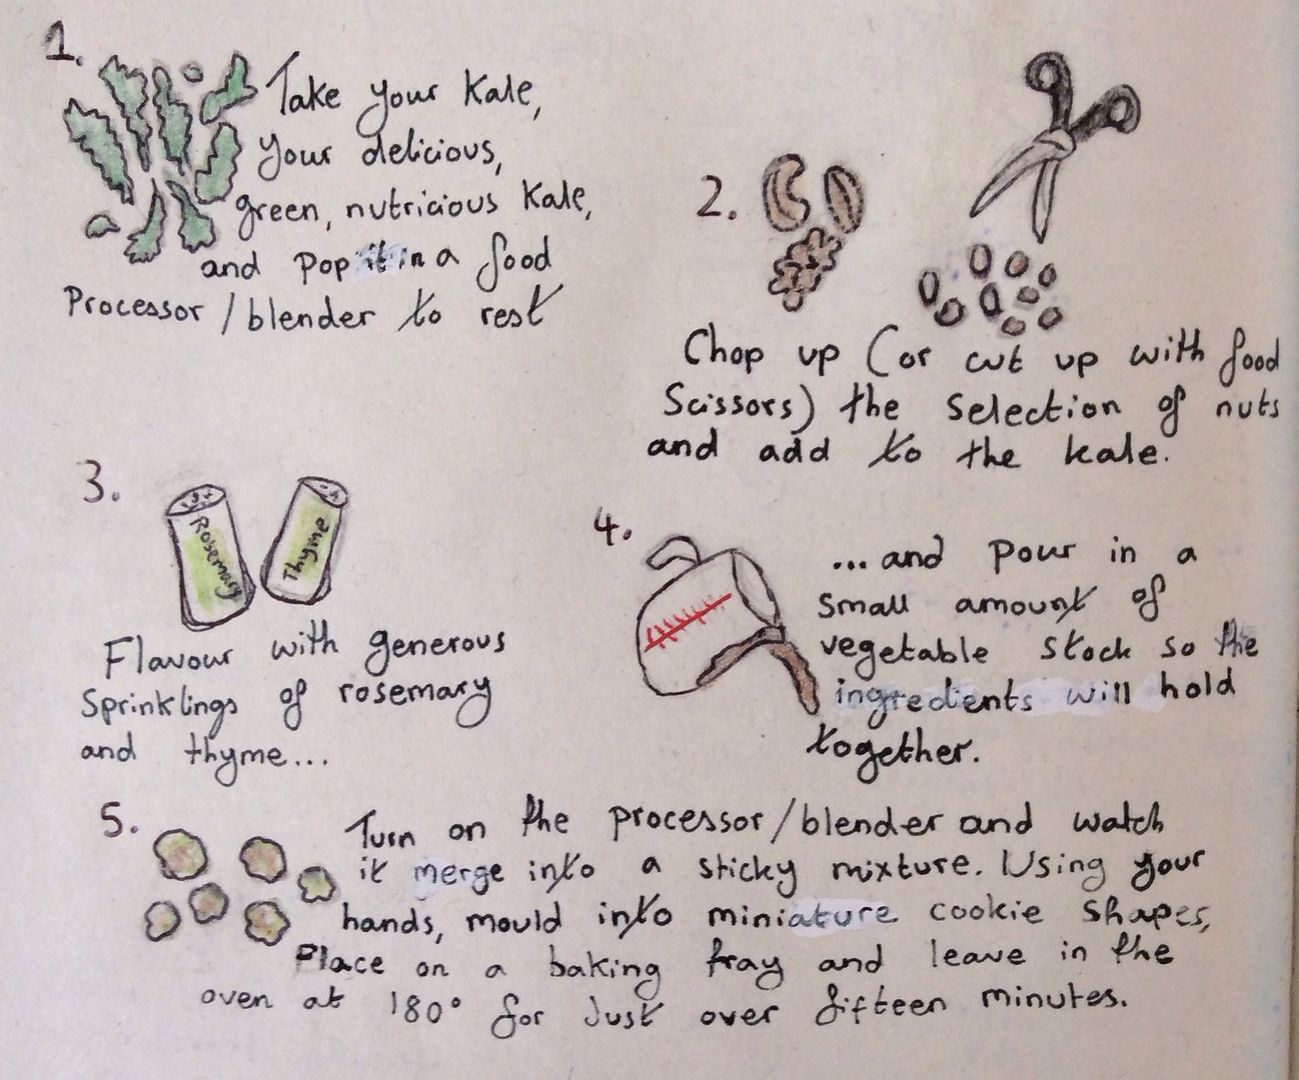 1.
Take your Kale,
your delicious,
green, nutricious Kale,
and Pop it in a food
Processor/blender to rest
2.
Chop up (or cut up with food
Scissors) the selection of nuts
and add to the kale.
3.
Rosemary
Thyme
Flavour with generous
Sprinklings of rosemary
and thyme...
4.
...and pour in a
small amount of
vegetable stock so the
ingredients will hold
together.
5.
Turn on the processor/blender and watch
it merge into a sticky mixture. Using your
hands, mould into miniature cookie shapes,
Place on a baking tray and leave in the
oven at 180° for just over fifteen minutes.